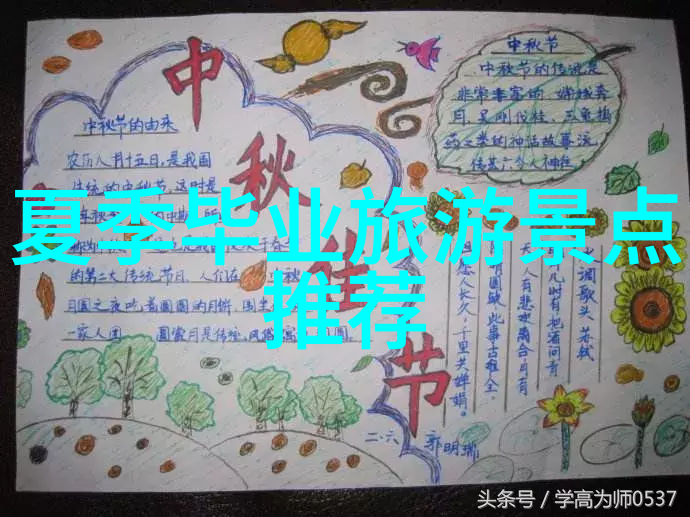 夏季毕业旅游景点
推荐
中秋佳节
中秋节的由来
农历八月十五日,是我国
传统的中秋节,这时是
的第二大传统节日,人们在
月圆之夜吃着圆圆的月饼,
一家人团
圆赏月是
中秋节
中秋节的传说是
非常丰富的,嫦娥奔
月,吴刚伐桂,玉兔捣
药之类的神话故事流
水调歌头 苏轼
明月几时有把酒问青
人有悲欢离合月有
阴晴圆缺此事古难全。
但愿人长久,千里共婵娟。
二.六 郭明瑞
头条号/学高为师0537